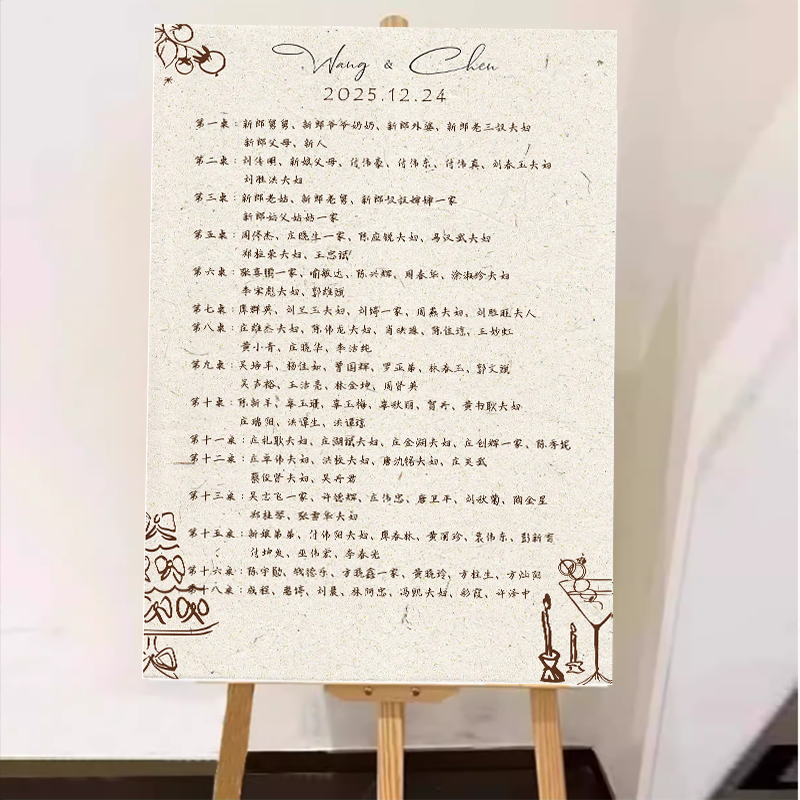 Wang & Chen
2025.12.24
第一桌：新郎舅舅、新郎爷爷奶奶、新郎外婆、新郎老三叔夫妇
新郎父母、新人
第二桌：刘伟明、新娘父母、付伟豪、付伟东、付伟真、刘春玉夫妇
刘胜洪夫妇
第三桌：新郎老姑、新郎老舅、新郎叔叔婶婶一家
新郎姑父姑姑一家
第五桌：周停杰、庄晓生一家、陈应锐夫妇、马汉武夫妇
郑拉荣夫妇、王忠斌
第六桌：张喜鹏一家、喻敏达、陈兴辉、周春华、涂淑珍夫妇
李宋彪夫妇、郭雄强
第七桌：廖群英、刘兰玉夫妇、刘博一家、周燕夫妇、刘胜旺夫人
第八桌：庄雄杰夫妇、陈伟龙夫妇、肖映璇、陈佳琼、王妙虹
黄小青、庄晓华、李洁纯
第九桌：吴培丰、杨佳如、曾国辉、罗亚弟、林春玉、郭文强
吴声裕、王洁亮、林金坤、周骨英
第十桌：陈新羊、辜玉珊、辜玉梅、辜映丽、贺丹、黄书耿夫妇
庄瑞阳、洪谭生、洪谭琼
第十一桌：庄礼耿夫妇、庄湖斌夫妇、庄金湖夫妇、庄创辉一家、陈季妮
第十二桌：庄卓伟夫妇、洪拉夫妇、唐氿锡夫妇、庄吴武
蔡俊贤夫妇、吴丹君
第十三桌：吴志飞一家、许德辉、庄伟忠、唐卫平、刘秋菊、陶金星
郑桂琴、张雪华夫妇
第十五桌：新娘弟弟、付伟阳夫妇、廖春林、黄润珍、袁伟东、彭新
付坤炎、巫伟宏、李春光
第十六桌：陈宇勋、钱德乐、方晓鑫一家、黄晓玲、方柱生、方灿阳
第十八桌：成程、惠博、刘晨、林阿忠、冯凯夫妇、彩霞、许泽中